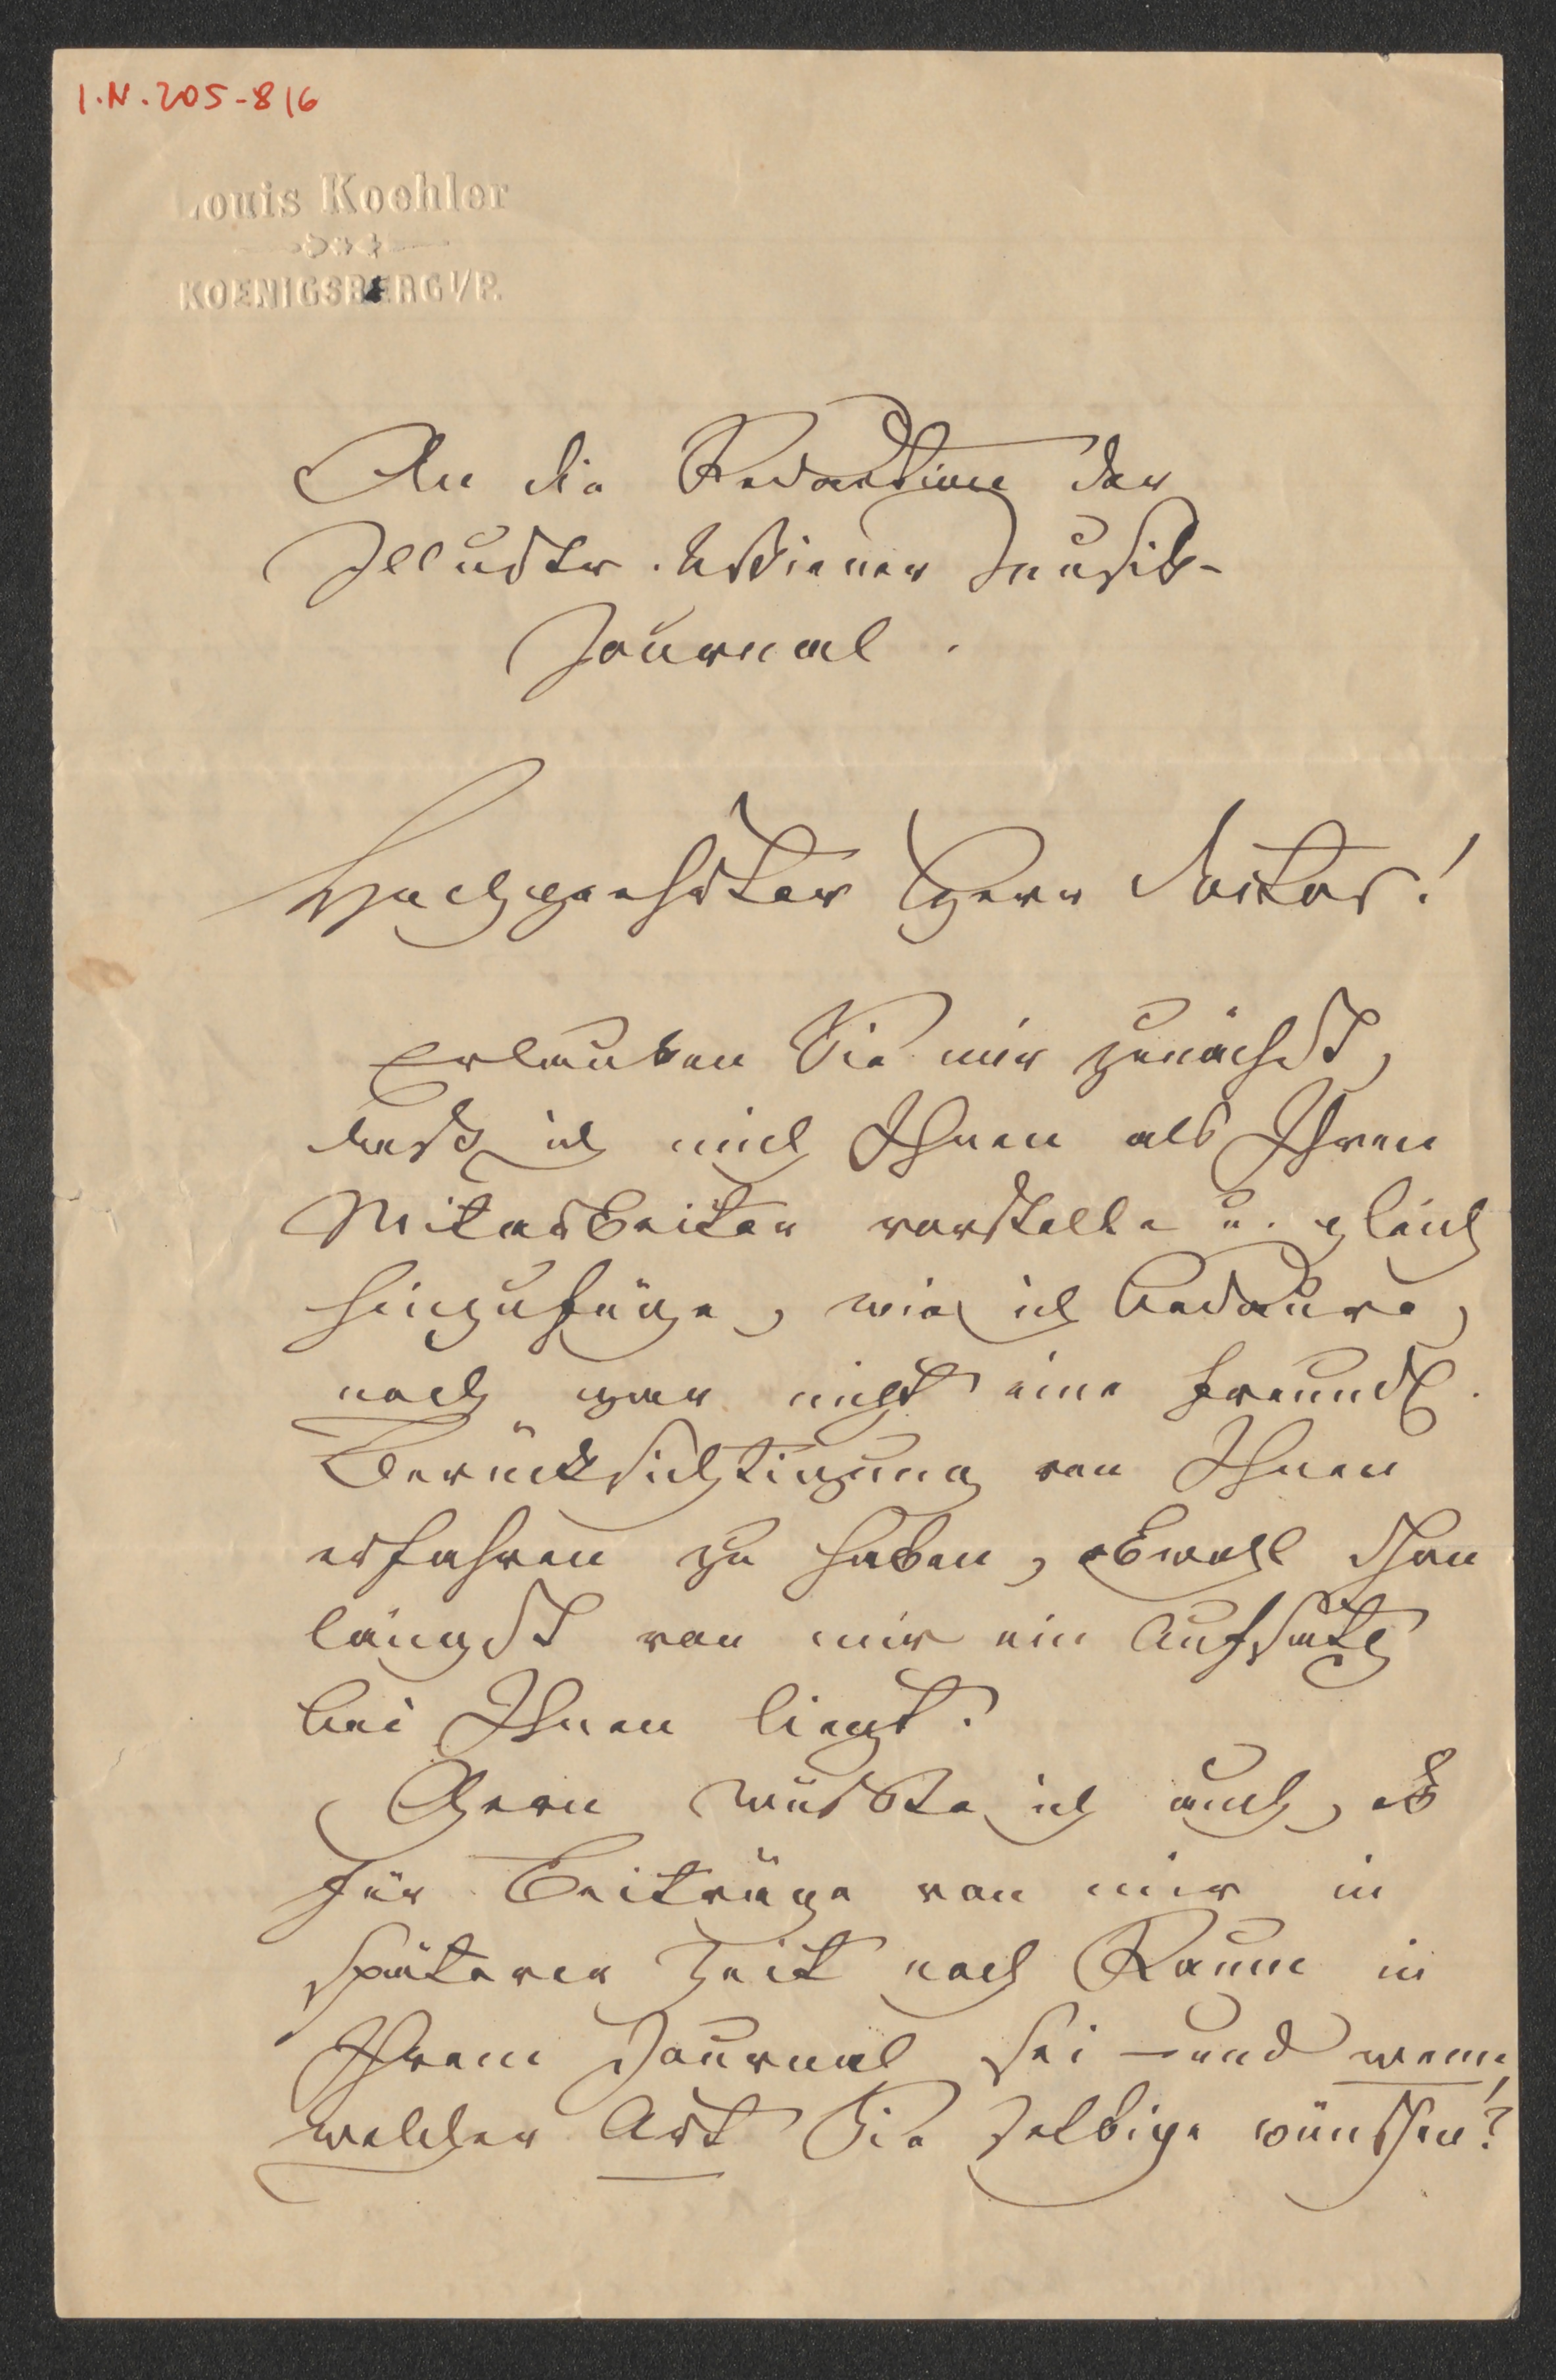 I.N. 205-816
Louis Koehler
KOENIGSBERG I/P.
An die Redaction der
Illustr. Wiener Musik-
Journal.
Hochgeehrter Herr Doctor!
Erlauben Sie mir zunächst,
daß ich mich Ihnen als Ihren
Mitarbeiter vorstelle u. gleich
hinzufüge, wie ich bedaure,
noch gar nicht eine freundl.
Berücksichtigung von Ihnen
erfahren zu haben, obwohl schon
längst von mir ein Aufsatz
bei Ihnen liegt.
Gern wüsste ich auch, ob
für Beiträge von mir in
späterer Zeit noch Raum in
Ihrem Journal sei – und wenn,
welcher Art Sie selbige wünschen?